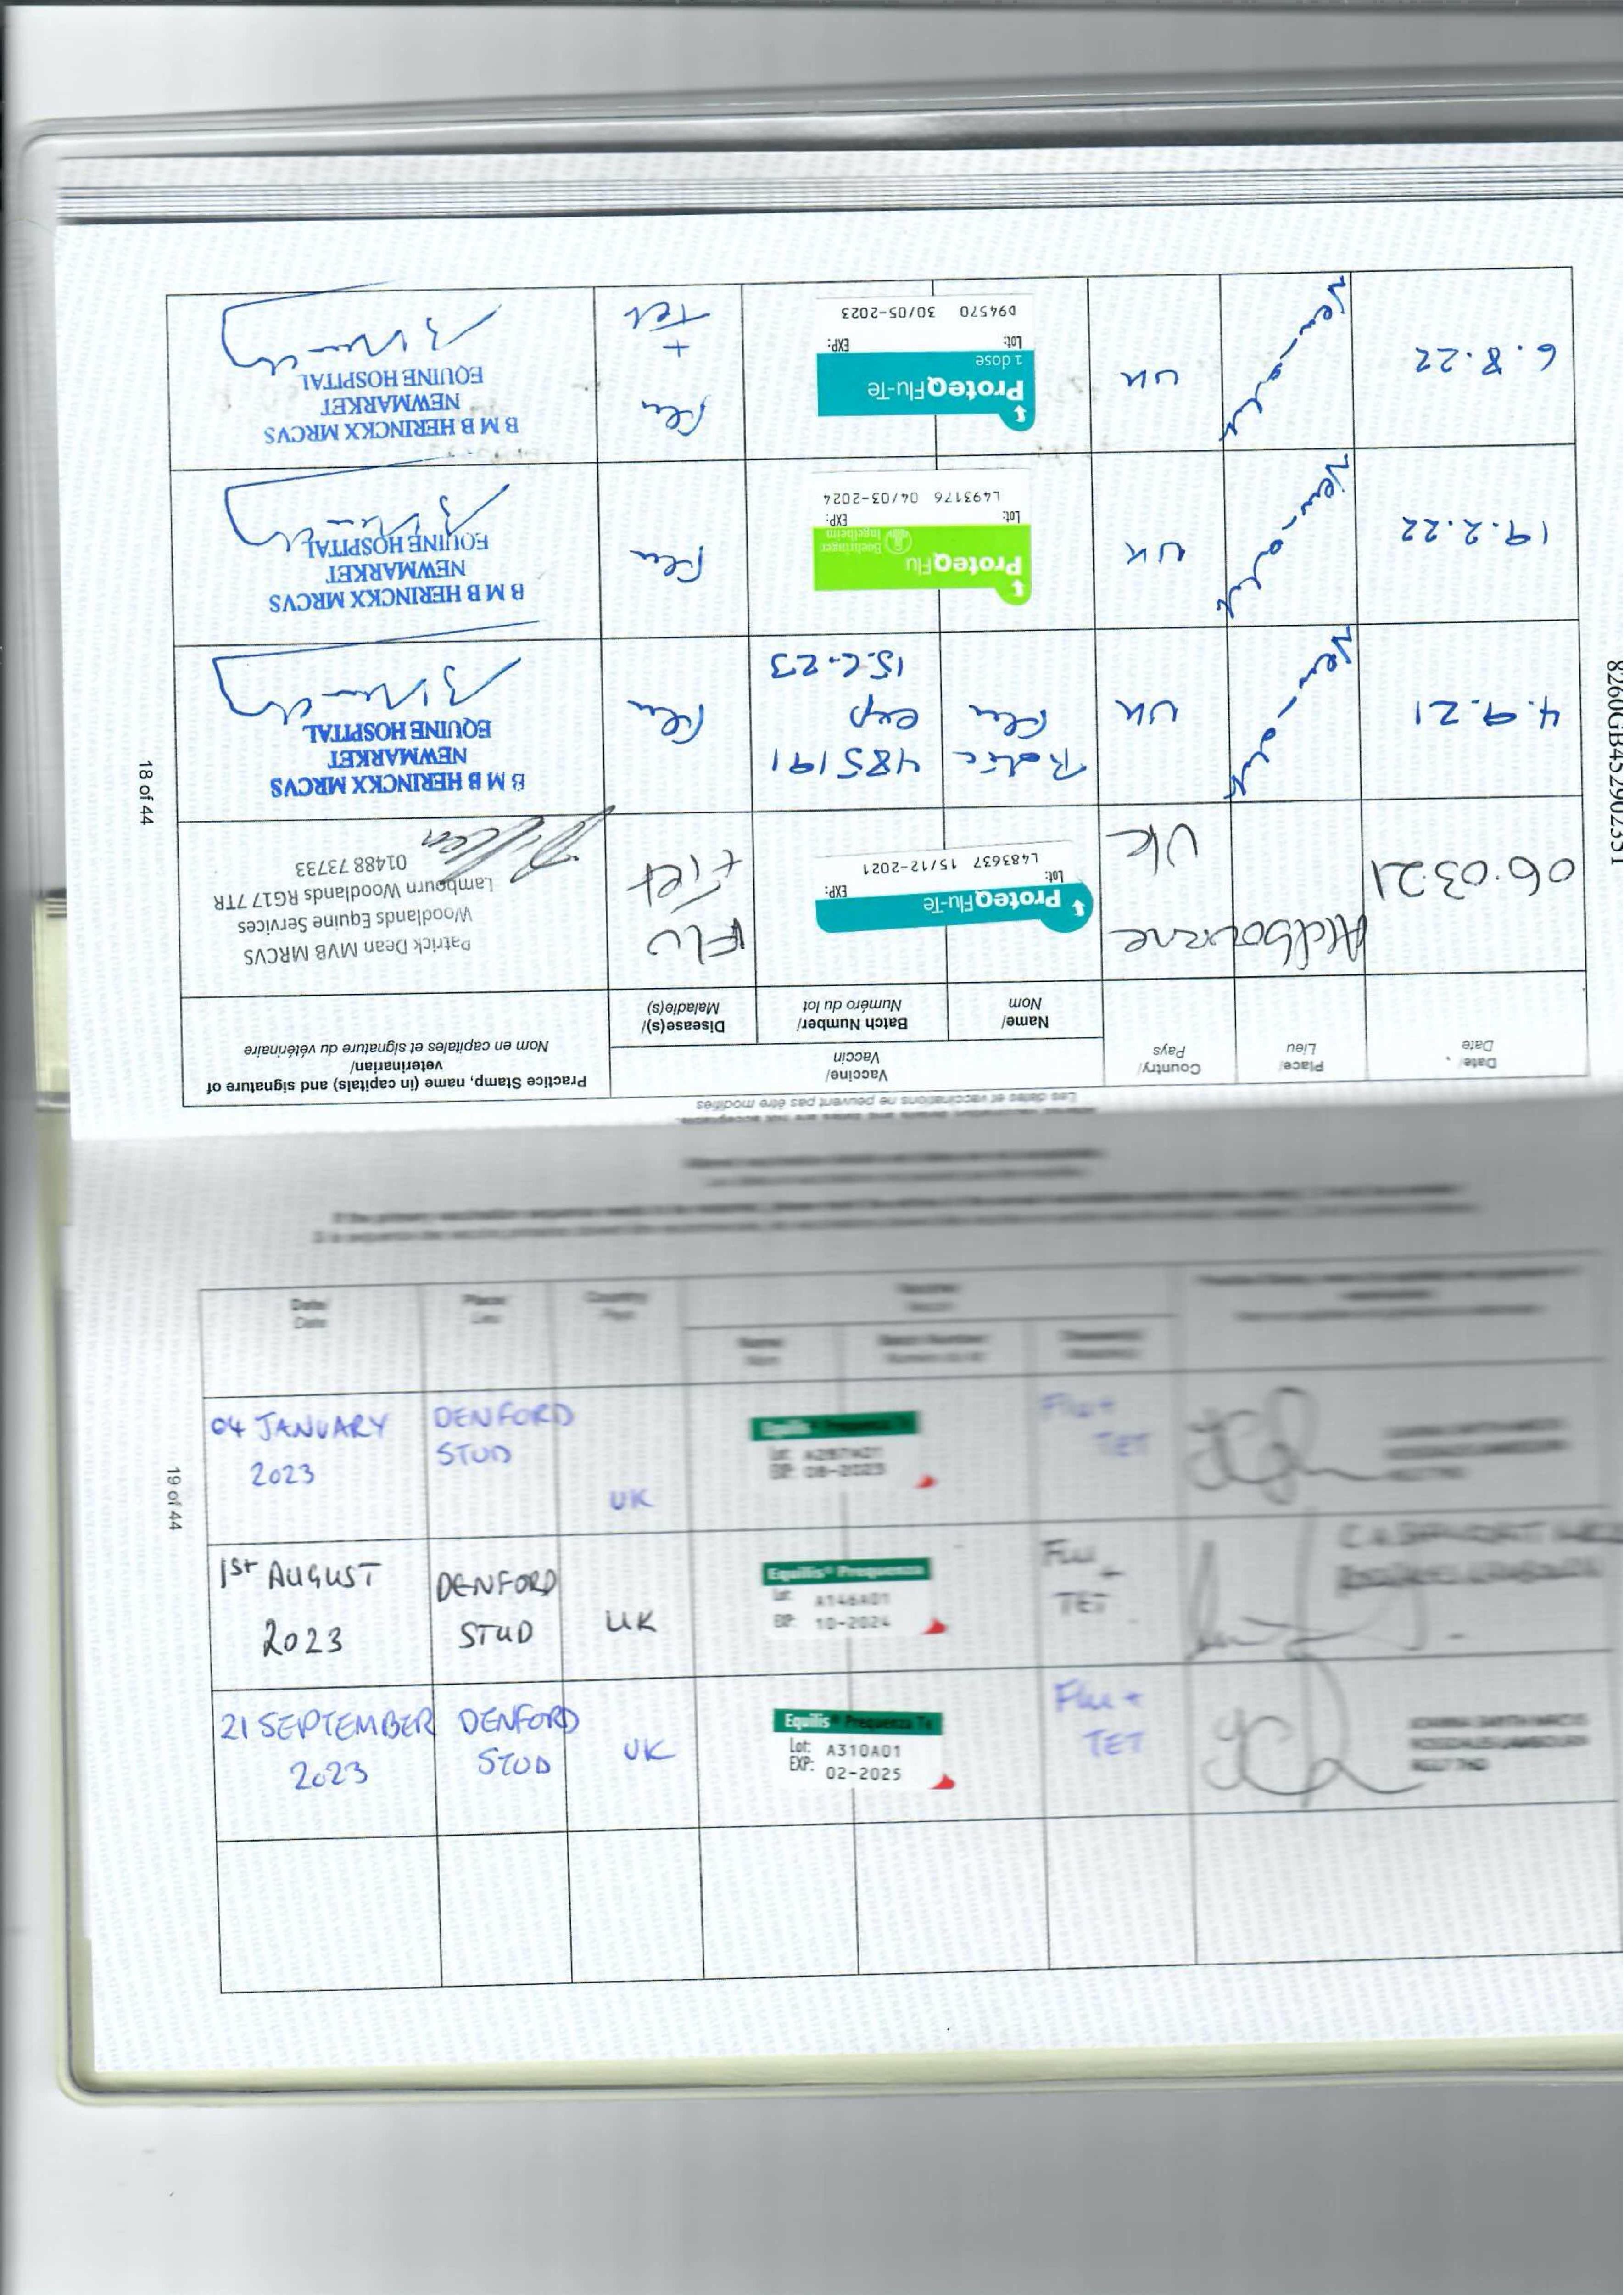 Les dates et vaccinations ne peuvent pas être modifiés
Date/
Date
Place/
Lieu
Country/
Pays
Vaccine/
Vaccin
Name/
Nom
Batch Number/
Numéro du lot
Disease(s)/
Maladie(s)
Practice Stamp, name (in capitals) and signature of
veterinarian/
Nom en capitales et signature du vétérinaire
06.03.21
Aldbourne
UK
ProteqFlu-Te
Lot: EXP:
L483637 15/12-2021
FLU
+ Tet
Patrick Dean MVB MRCVS
Woodlands Equine Services
Lambourn Woodlands RG17 7TR
01488 73733
4.9.21
Newmarket
UK
Proteq
Flu
485191
exp
15.2.23
Flu
B M B HERINCKX MRCVS
NEWMARKET
EQUINE HOSPITAL
19.2.22
Newmarket
UK
ProteqFlu
Boehringer
Ingelheim
Lot: EXP:
L493176 04/03-2024
Flu
B M B HERINCKX MRCVS
NEWMARKET
EQUINE HOSPITAL
6.8.22
Newmarket
UK
ProteqFlu-Te
1 dose
Lot: EXP:
D94570 30/05-2023
Flu
+
Tet
B M B HERINCKX MRCVS
NEWMARKET
EQUINE HOSPITAL
18 of 44
Date/
Date
Place/
Lieu
Country/
Pays
04 JANUARY
2023
DENFORD
STUD
UK
Equilis® Prequenza Te
EXP: 08-2023
Flu +
TET
1st AUGUST
2023
DENFORD
STUD
UK
Equilis® Prequenza
Lot: A146A01
EXP: 10-2024
Flu
+
TET
21 SEPTEMBER
2023
DENFORD
STUD
UK
Equilis® Prequenza Te
Lot: A310A01
EXP: 02-2025
Flu +
TET
19 of 44